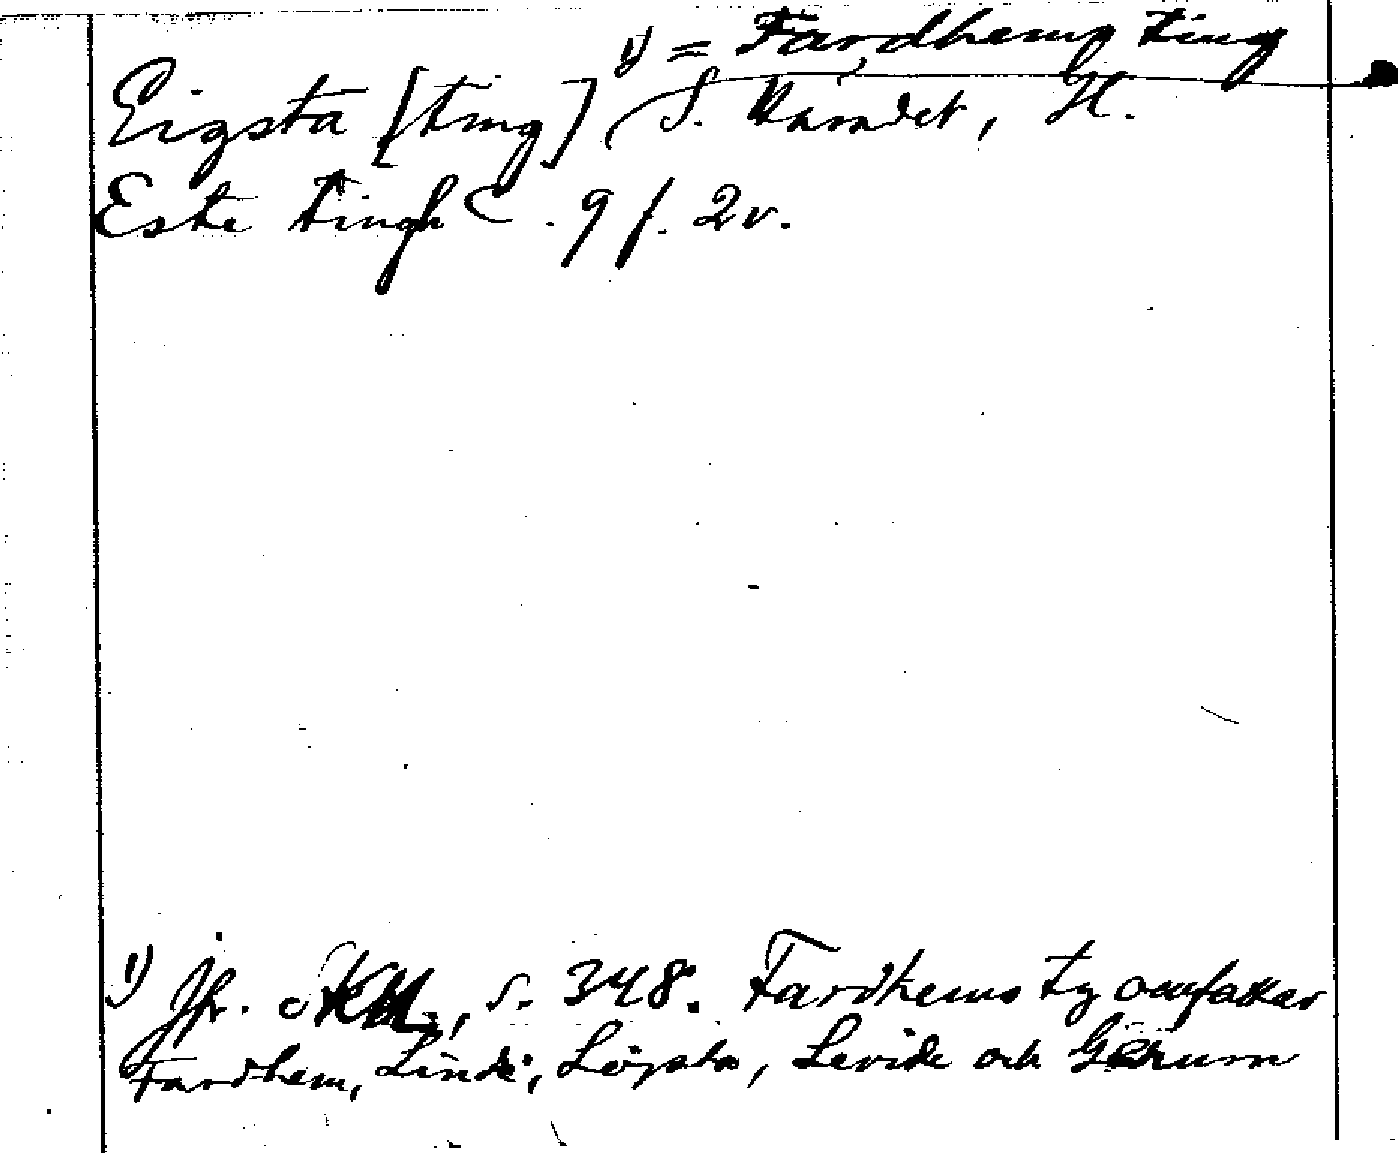 1) = Fardhems ting
Eigsta [ting] S. häradet, H.
Este tingh C. 9 f. 2v.
1) Jfr. s. 348. Fardhems tg omfattar
Fardhem, Linde, Löjsta, Levide och Gerum